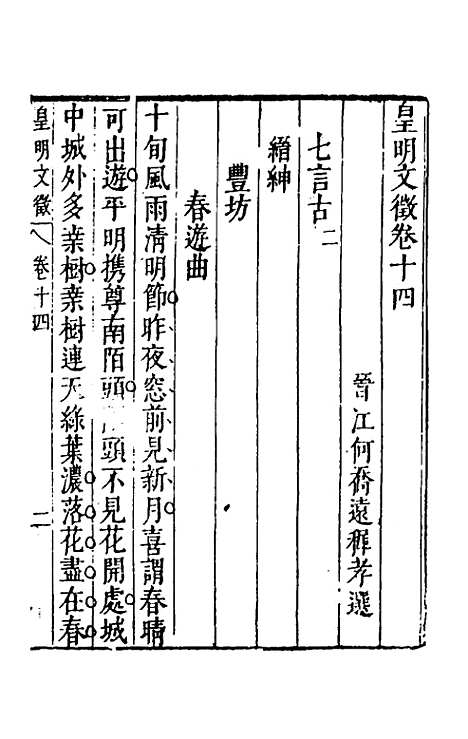 皇明文徵卷十四
晉江何喬遠穉孝選
七言古二
縉紳
豐坊
春遊曲
十旬風雨清明節昨夜窓前見新月喜謂春晴
可出遊平明携尊南陌頭頭不見花開處城
中城外多亲樹亲樹連天綠葉濃落花盡在春
皇明文徵
卷十四
二